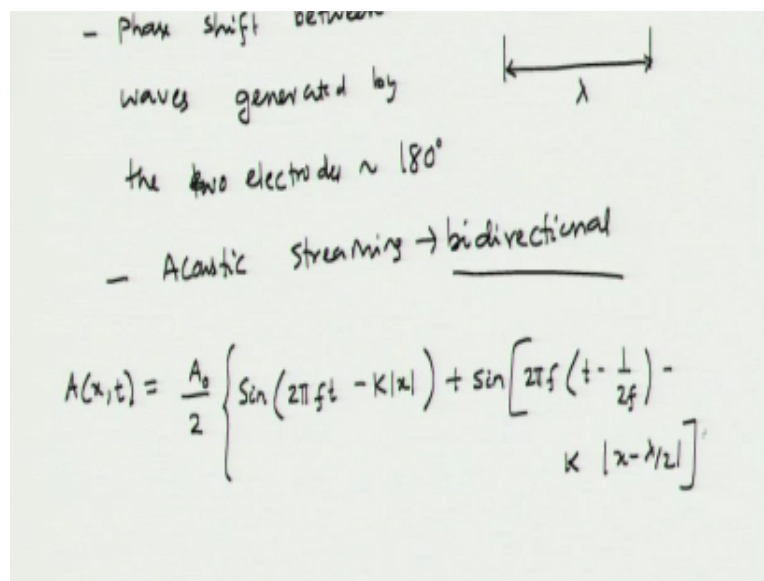 - Phase shift between
waves generated by
λ
the two electrodes ~ 180°
- Acoustic streaming → bidirectional
A(x,t) = A₀/2 { Sin (2πft - K|x|) + Sin [2πf (t - 1/2f) -
K |x-λ/2|]